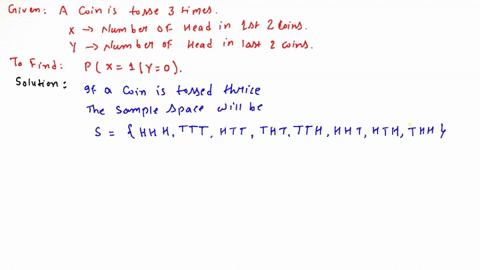 Given: A Coin is tosse 3 times.
X → Number of Head in 1st 2 Coins.
Y → Number of Head in last 2 coins.
To Find: P(X=1|Y=0).
Solution: If a Coin is tossed thrice
The Sample Space will be
S = {HHH, TTT, HTT, THT, TTH, HHT, HTH, THH}